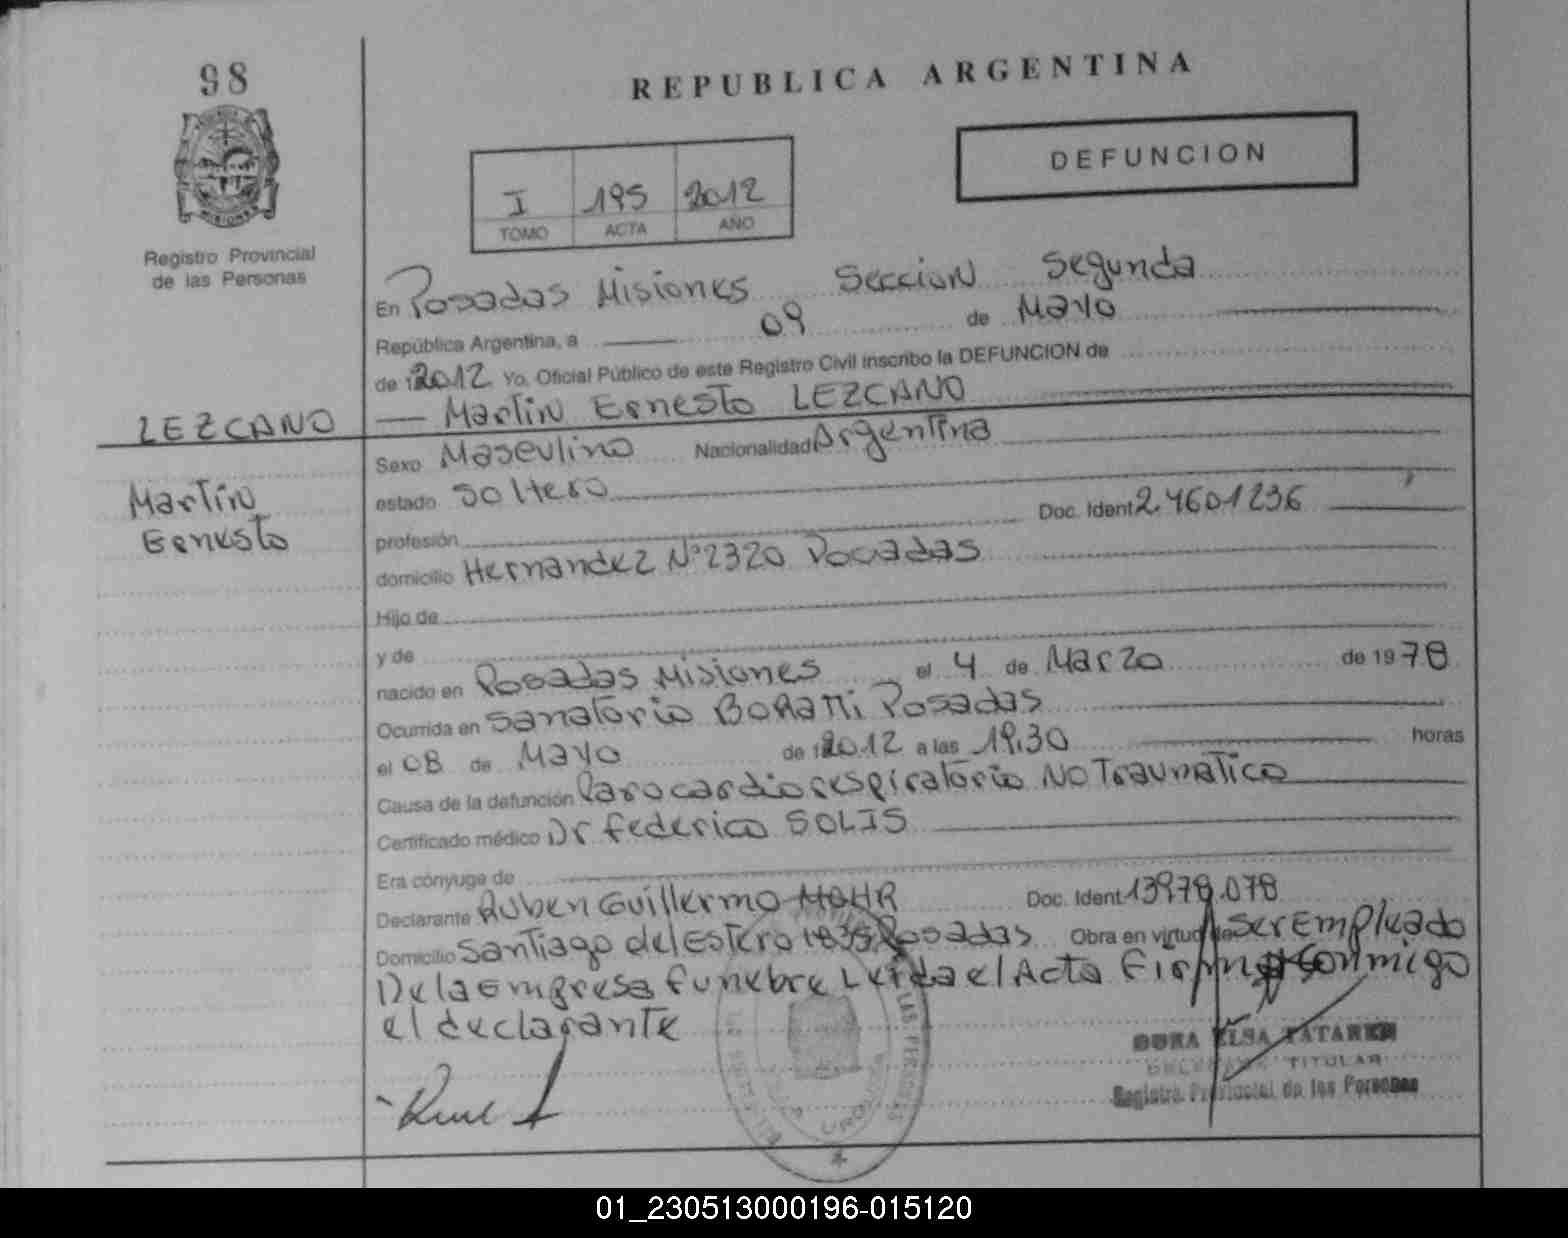 98
REPUBLICA ARGENTINA
DEFUNCION
I 195 2012
TOMO ACTA AÑO
Registro Provincial
de las Personas
En Posadas Misiones Seccion Segunda
República Argentina, a 09 de Mayo
de 2012 Yo, Oficial Público de este Registro Civil inscribo la DEFUNCION de
LEZCANO Martin Ernesto LEZCANO
Sexo Masculino Nacionalidad Argentina
Martin
Ernesto
estado soltero
profesión Doc. Ident 2.4601236
domicilio Hernandez Nº2320 Posadas
Hijo de
y de
nacido en Posadas Misiones el 4 de Marzo de 1978
Ocurrida en Sanatorio BORATTI Posadas
el 08 de Mayo de 12012 a las 19:30 horas
Causa de la defunción Parocardiorespiratorio No Traumatico
Certificado médico Dr Federico SOLIS
Era cónyuge de
Declarante Ruben Guillermo MOHR Doc. Ident 13978.078
Domicilio Santiago del Estero Posadas Obra en virtud de ser Empleado
De la Empresa funebre Leida el Acta Firma conmigo
el declarante
ELSA
TITULAR
Registro Provincial de las Personas
01_230513000196-015120